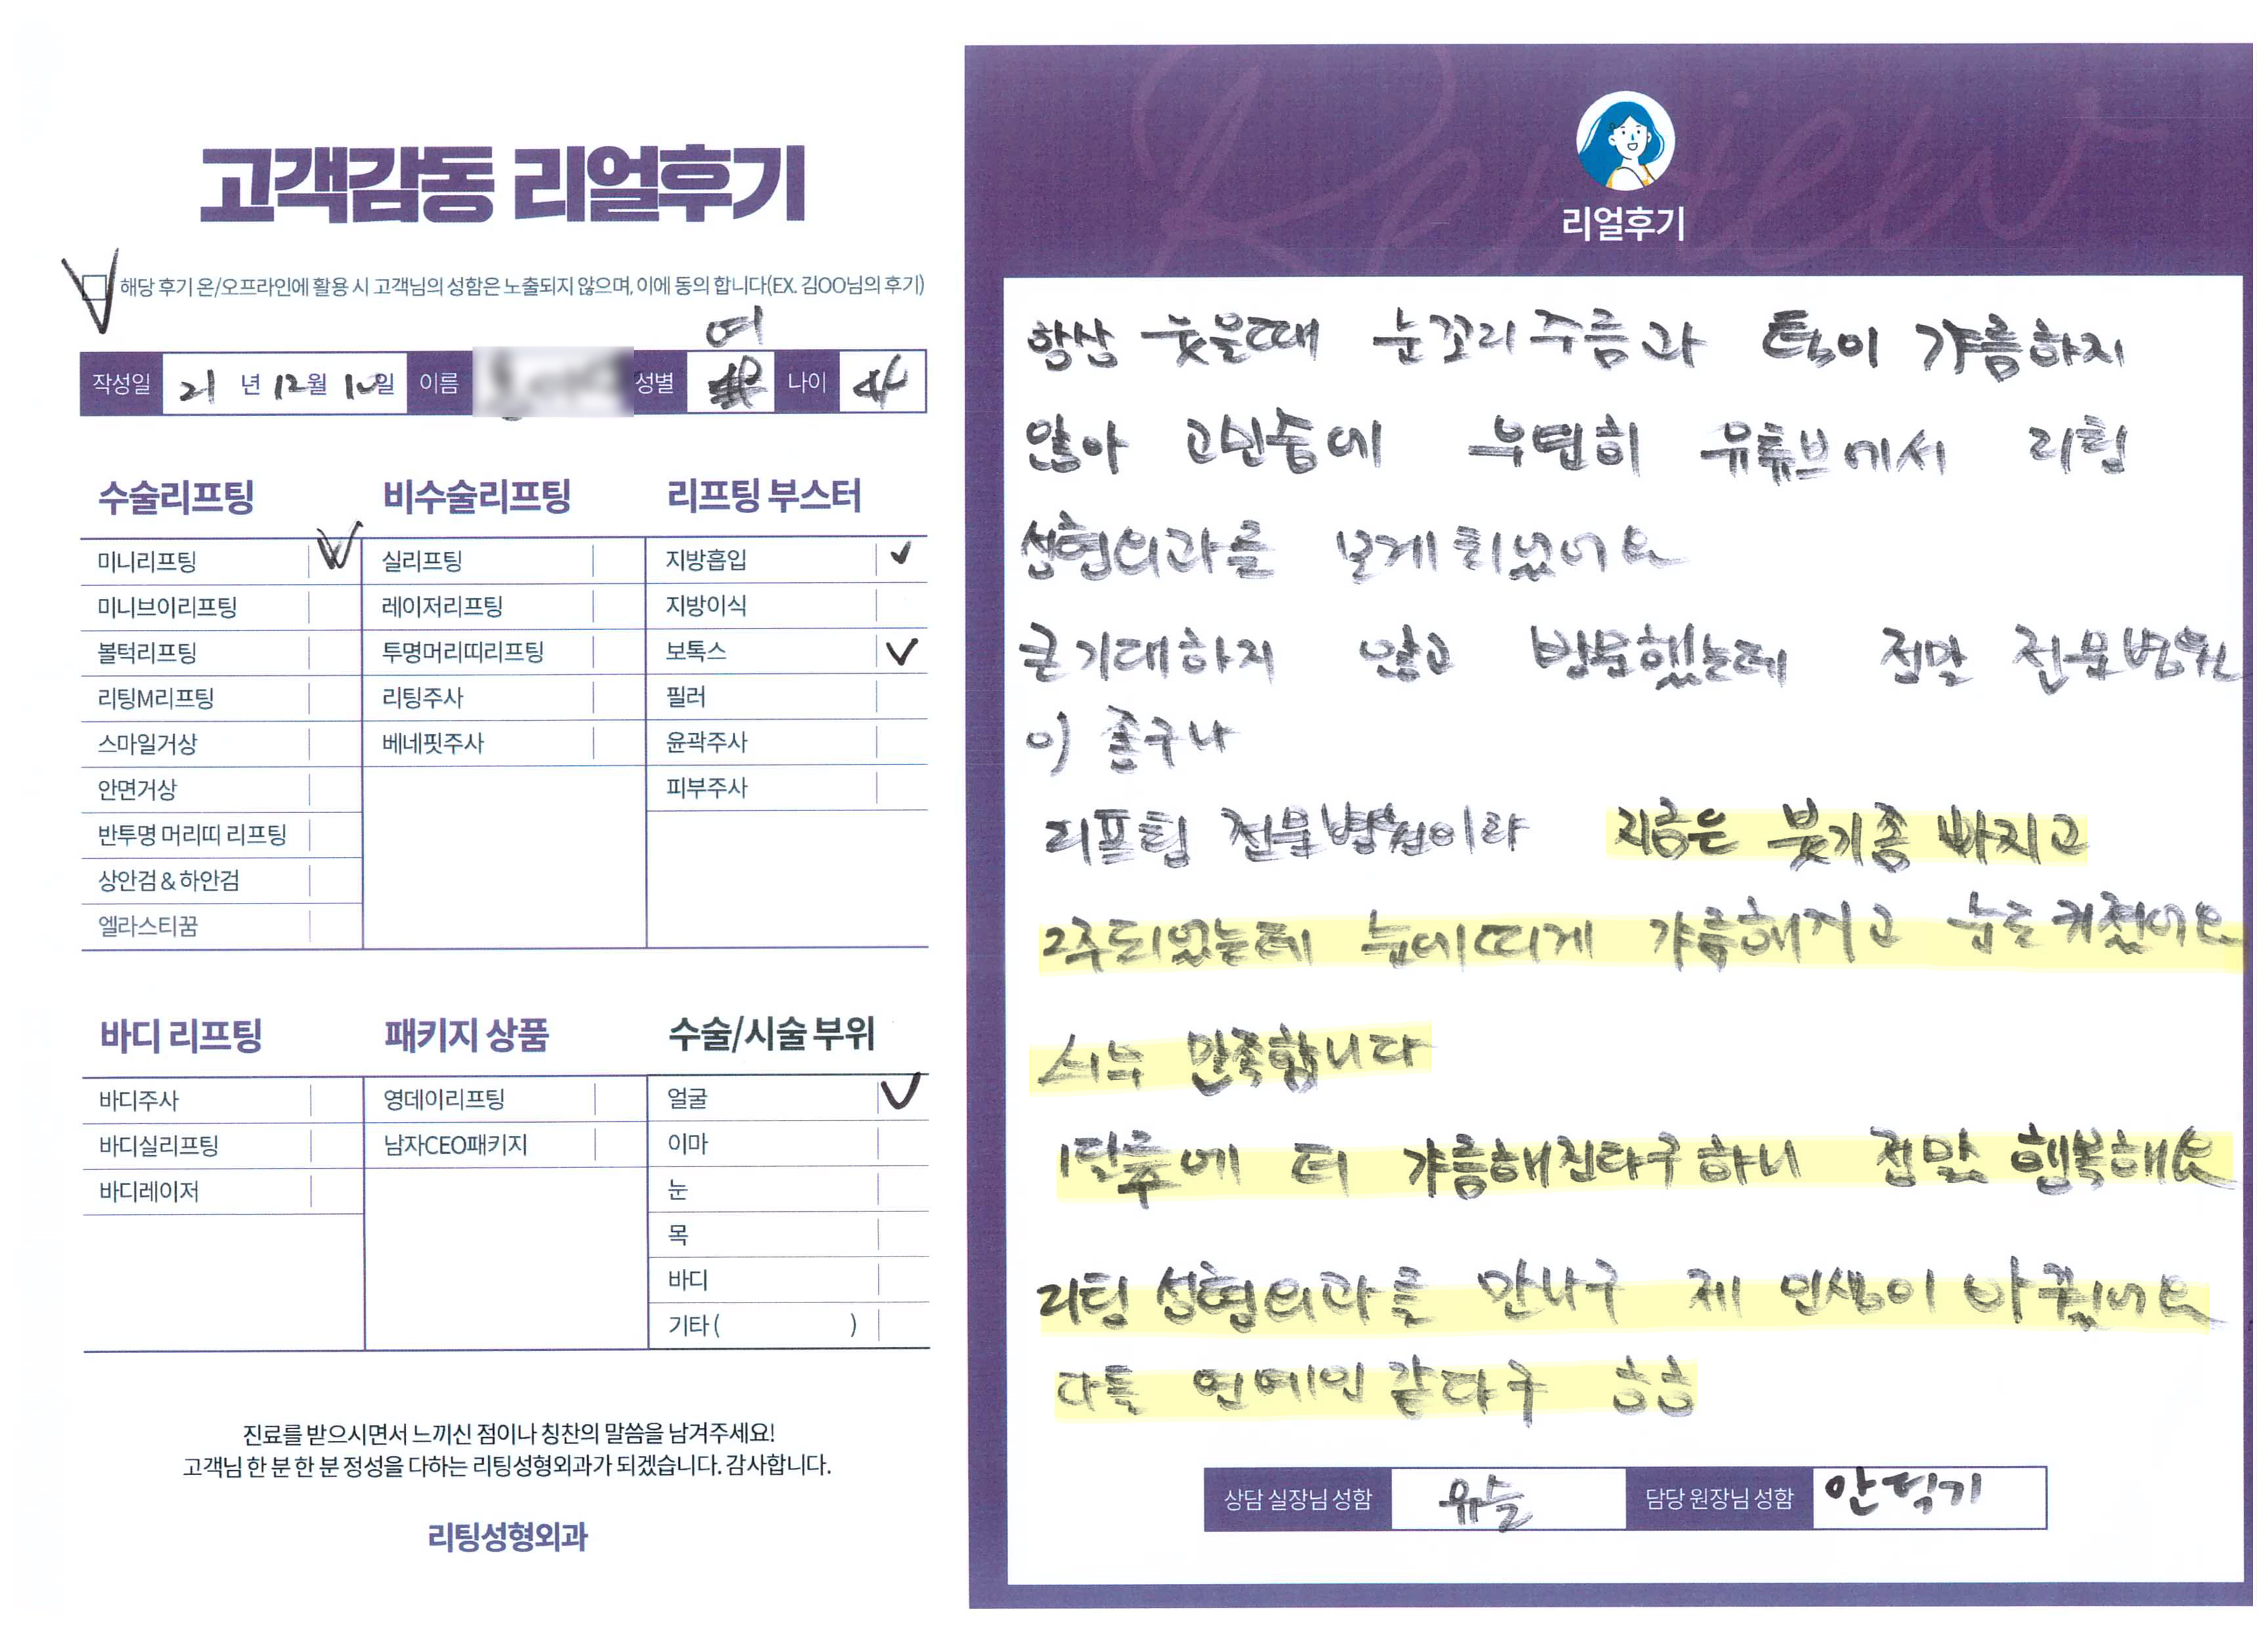 고객감동 리얼후기
해당 후기 온/오프라인에 활용 시 고객님의 성함은 노출되지 않으며, 이에 동의 합니다(EX. 김OO님의 후기)
여
작성일 21 년 12월 10일 이름 성별 나이 44
수술리프팅
미니리프팅
미니브이리프팅
볼턱리프팅
리팅M리프팅
스마일거상
안면거상
반투명 머리띠 리프팅
상안검 & 하안검
엘라스티꿈
비수술리프팅
실리프팅
레이저리프팅
투명머리띠리프팅
리팅주사
베네핏주사
리프팅 부스터
지방흡입
지방이식
보톡스
필러
윤곽주사
피부주사
바디 리프팅
바디주사
바디실리프팅
바디레이저
패키지 상품
영데이리프팅
남자CEO패키지
수술/시술 부위
얼굴
이마
눈
목
바디
기타 ( )
진료를 받으시면서 느끼신 점이나 칭찬의 말씀을 남겨주세요!
고객님 한 분 한 분 정성을 다하는 리팅성형외과가 되겠습니다. 감사합니다.
리팅성형외과
Review
리얼후기
항상 웃을때 눈꼬리 주름과 턱이 갸름하지
않아 고민중에 우연히 유튜브에서 리팅
성형외과를 보게 되었어요
큰 기대하지 않고 방문했는데 정말 전문병원
이 좋구나
리프팅 전문병원이라 지금은 붓기좀 빠지고
2주되었는데 눈에띠게 갸름해지고 눈도 커졌어요
너무 만족합니다
1달후에 더 갸름해진다구 하니 정말 행복해요
리팅 성형외과를 만나구 제 인생이 바꼈어요
다들 연예인 같다구 ㅎㅎ
상담 실장님 성함 유슬 담당 원장님 성함 안덕기